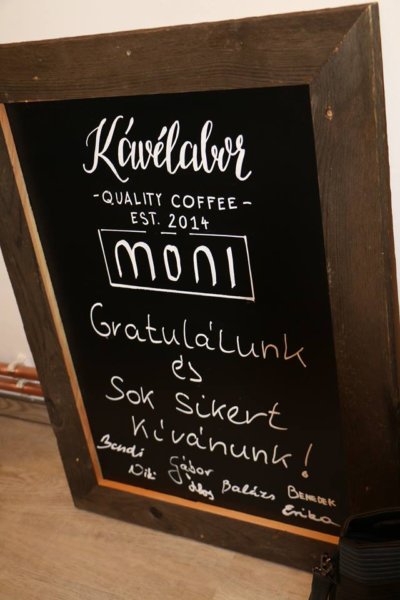 Kávélabor
-QUALITY COFFEE-
EST. 2014
MONI
GratuláLunk
és
Sok Sikert
Kívánunk!
Bandi Gábor Balázs BENEDEK
Niki Erika